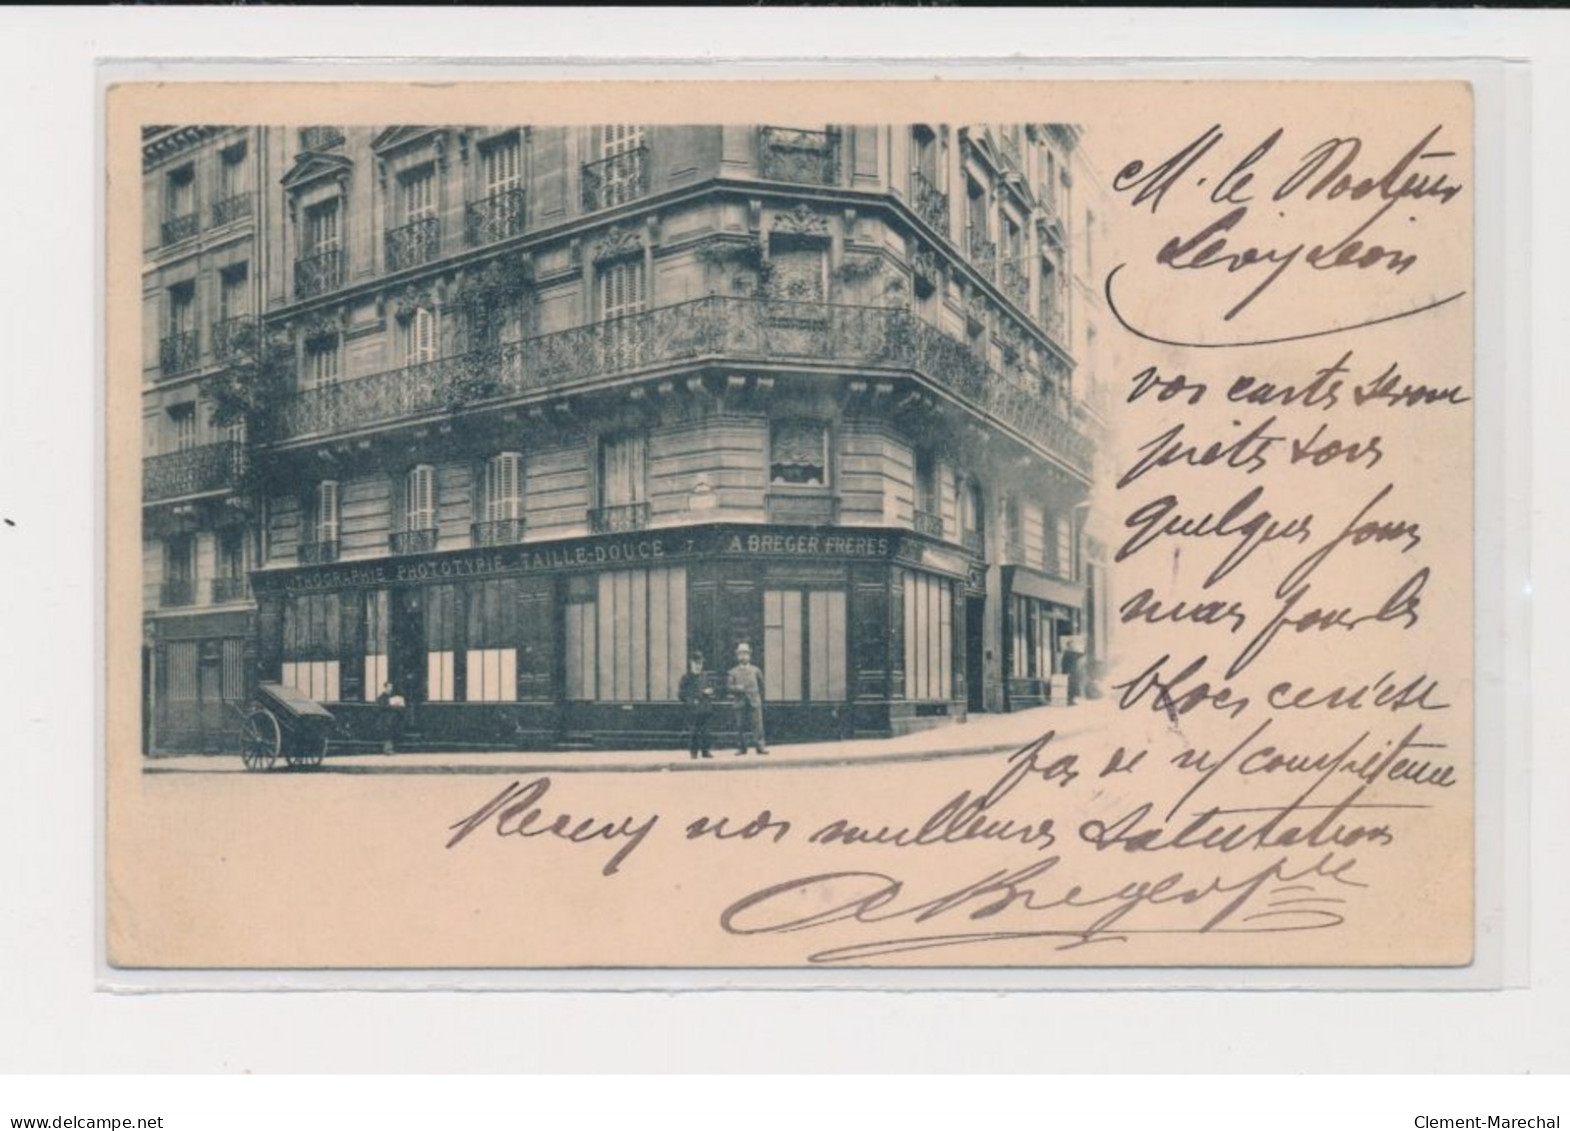 LITHOGRAPHIE PHOTOTYPIE - TAILLE-DOUCE 7 A BREGER FRERES
M. le Docteur
Levy Leon
vos cartes seron
prêts dans
quelques jours
mais pour les
blocs ceci n'est
pas de n/ compétence
Recevez nos meilleures salutations
A Breger frre
www.delcampe.net
Clement-Marechal